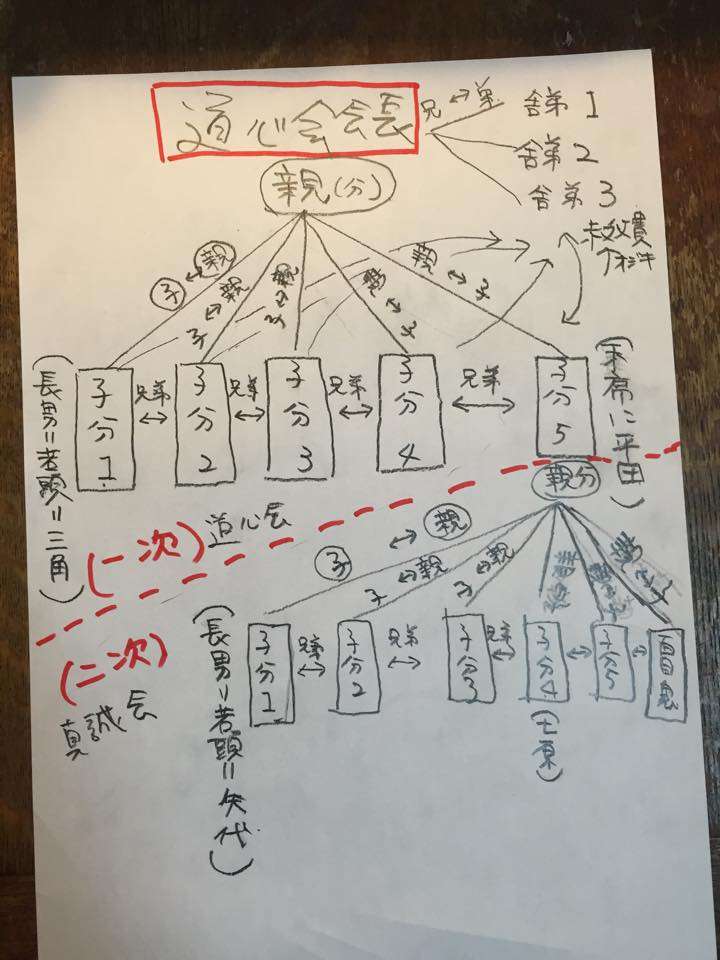 道心会会長
兄↔弟
舎弟1
舎弟2
舎弟3
親(分)
子↔親
子↔親
子↔親
親↔子
親↔子
子分1
兄弟
子分2
兄弟
子分3
兄弟
子分4
兄弟
子分5
(長男=若頭=三角)
(末席に平田)
(一次)
道心会
親分
子↔親
子↔親
子↔親
(二次)
真誠会
(長男=若頭=矢代)
子分1
兄弟
子分2
兄弟
子分3
兄弟
子分4
子分5
百目鬼